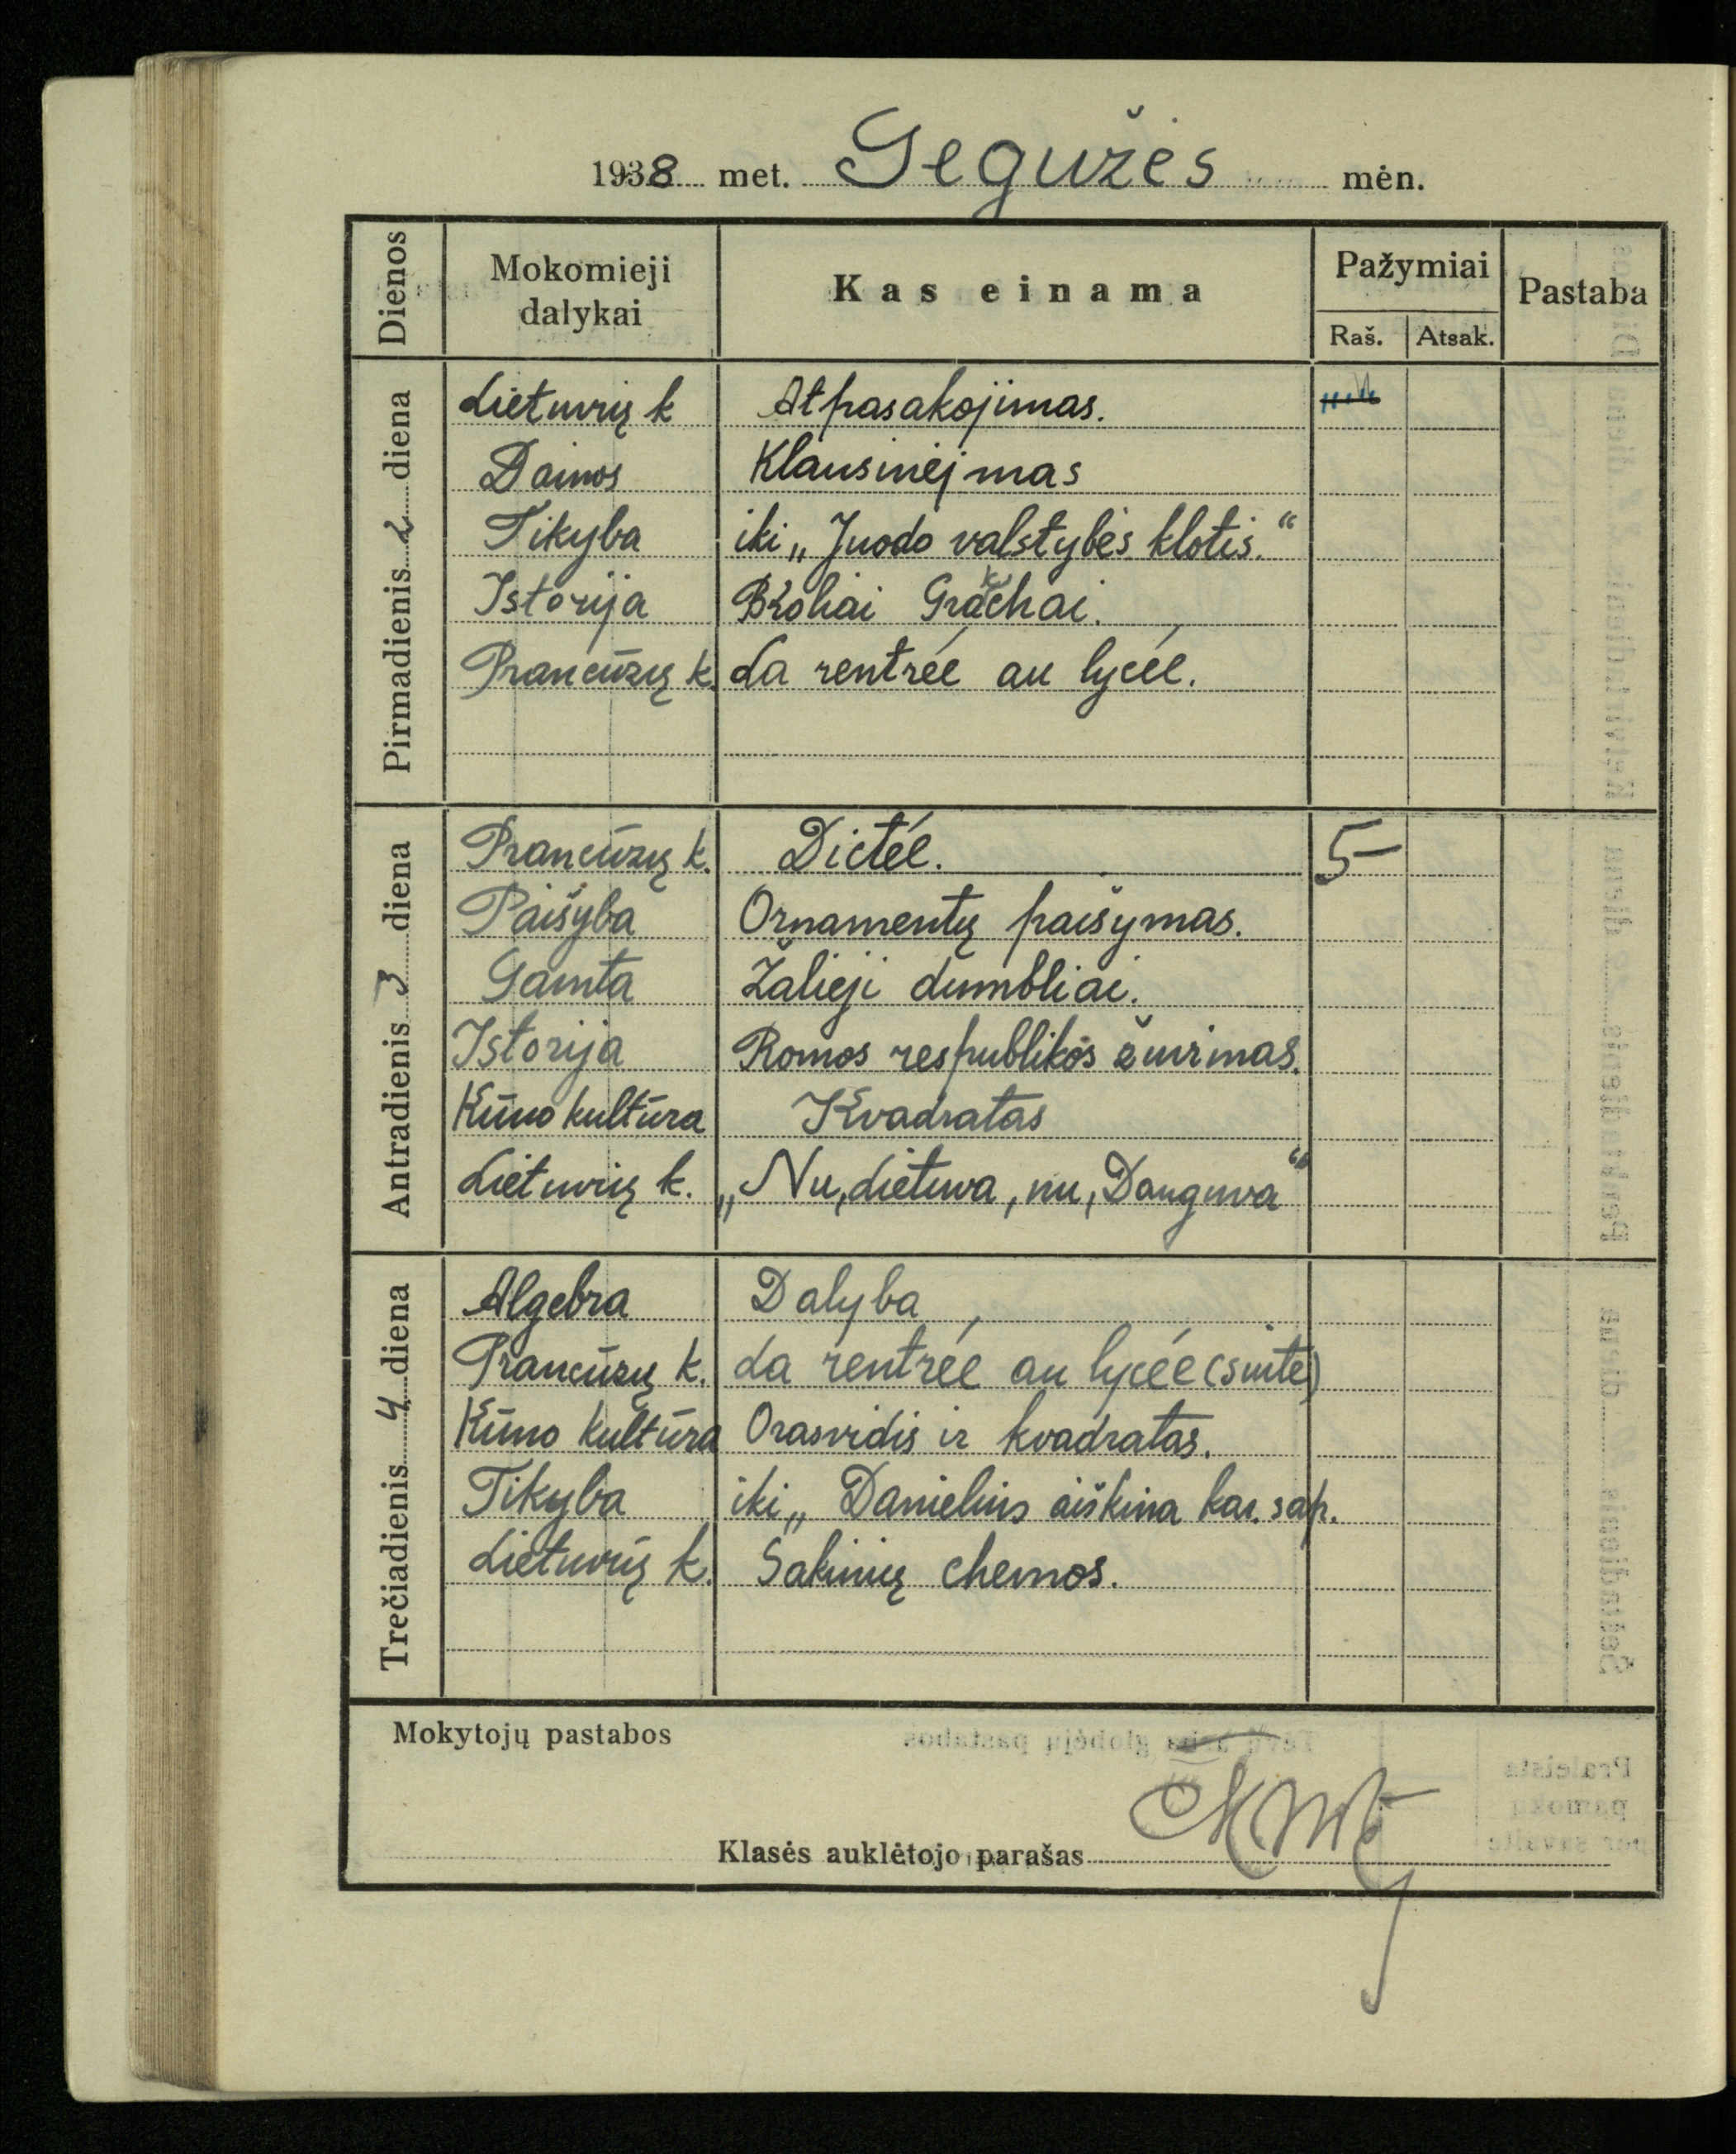 1938 met. Gegužės mėn.
Dienos Mokomieji dalykai Kas einama Pažymiai Pastaba
Raš. Atsak.
Pirmadienis 2 diena
Lietuvių k Atpasakojimas.
Dainos Klausinėjmas
Tikyba iki „Juodo valstybės klotis.“
Istorija Broliai Grakchai.
Prancūzų k. La rentrée au lycée.
Antradienis 3 diena
Prancūzų k. Dictée. 5-
Paišyba Ornamentų paišymas.
Gamta Žalieji dumbliai.
Istorija Romos respublikos žuvimas.
Kūno kultūra Kvadratas
Lietuvių k. „Nu, Lietuva, nu, Dauguva“
Trečiadienis 4 diena
Algebra Dalyba
Prancūzų k. La rentrée au lycée (suite)
Kūno kultūra Orasvidis ir kvadratas.
Tikyba iki „Danielius aiškina kar. sap.
Lietuvių k. Sakinių chemos.
Mokytojų pastabos
Klasės auklėtojo parašas